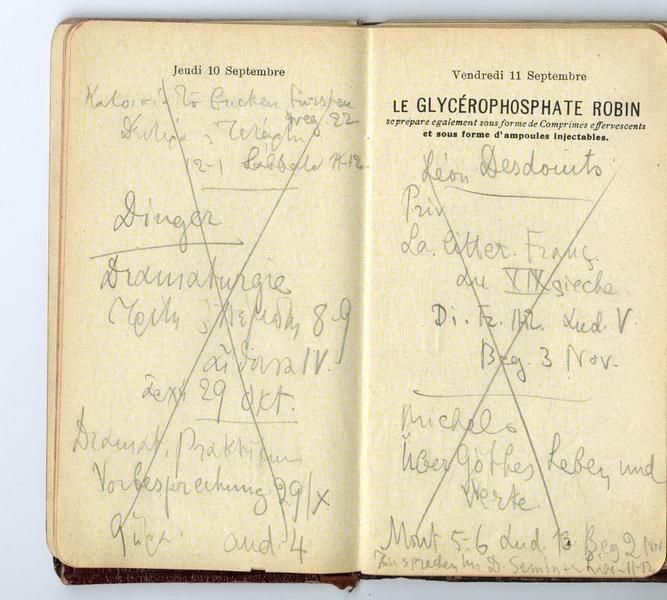 Jeudi 10 Septembre
Eucken Fürsten
22
12-1 Sabbato 11-12
Dinger
Dramaturgie
Τρίτη Πέμπτη 8-9
αἴθουσα IV.
29 Okt.
Dramat. Praktikum
Vorbesprechung 29/X
aud. 4
Vendredi 11 Septembre
LE GLYCÉROPHOSPHATE ROBIN
se prépare également sous forme de Comprimés effervescents
et sous forme d'ampoules injectables.
Léon Desdouits
Priv
La litter. Franç.
du XIX siecle.
Di. Fr. Aud. V.
Beg. 3 Nov.
Michels
Über Göthes Leben und
Werke.
Mont 5-6 Aud. 13 Beg 2 Nov
D. Seminar 11-12